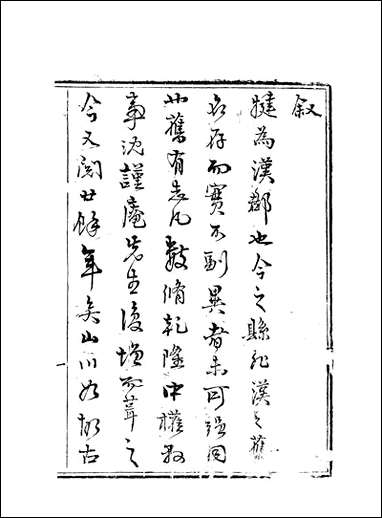 叙
犍為漢郡也今之縣非漢之舊
名存而實不副異者未可強同
也舊有志凡數脩乾隆中權縣
事沈謹庵先生復增而葺之
今又閱廿餘年矣山川如故古